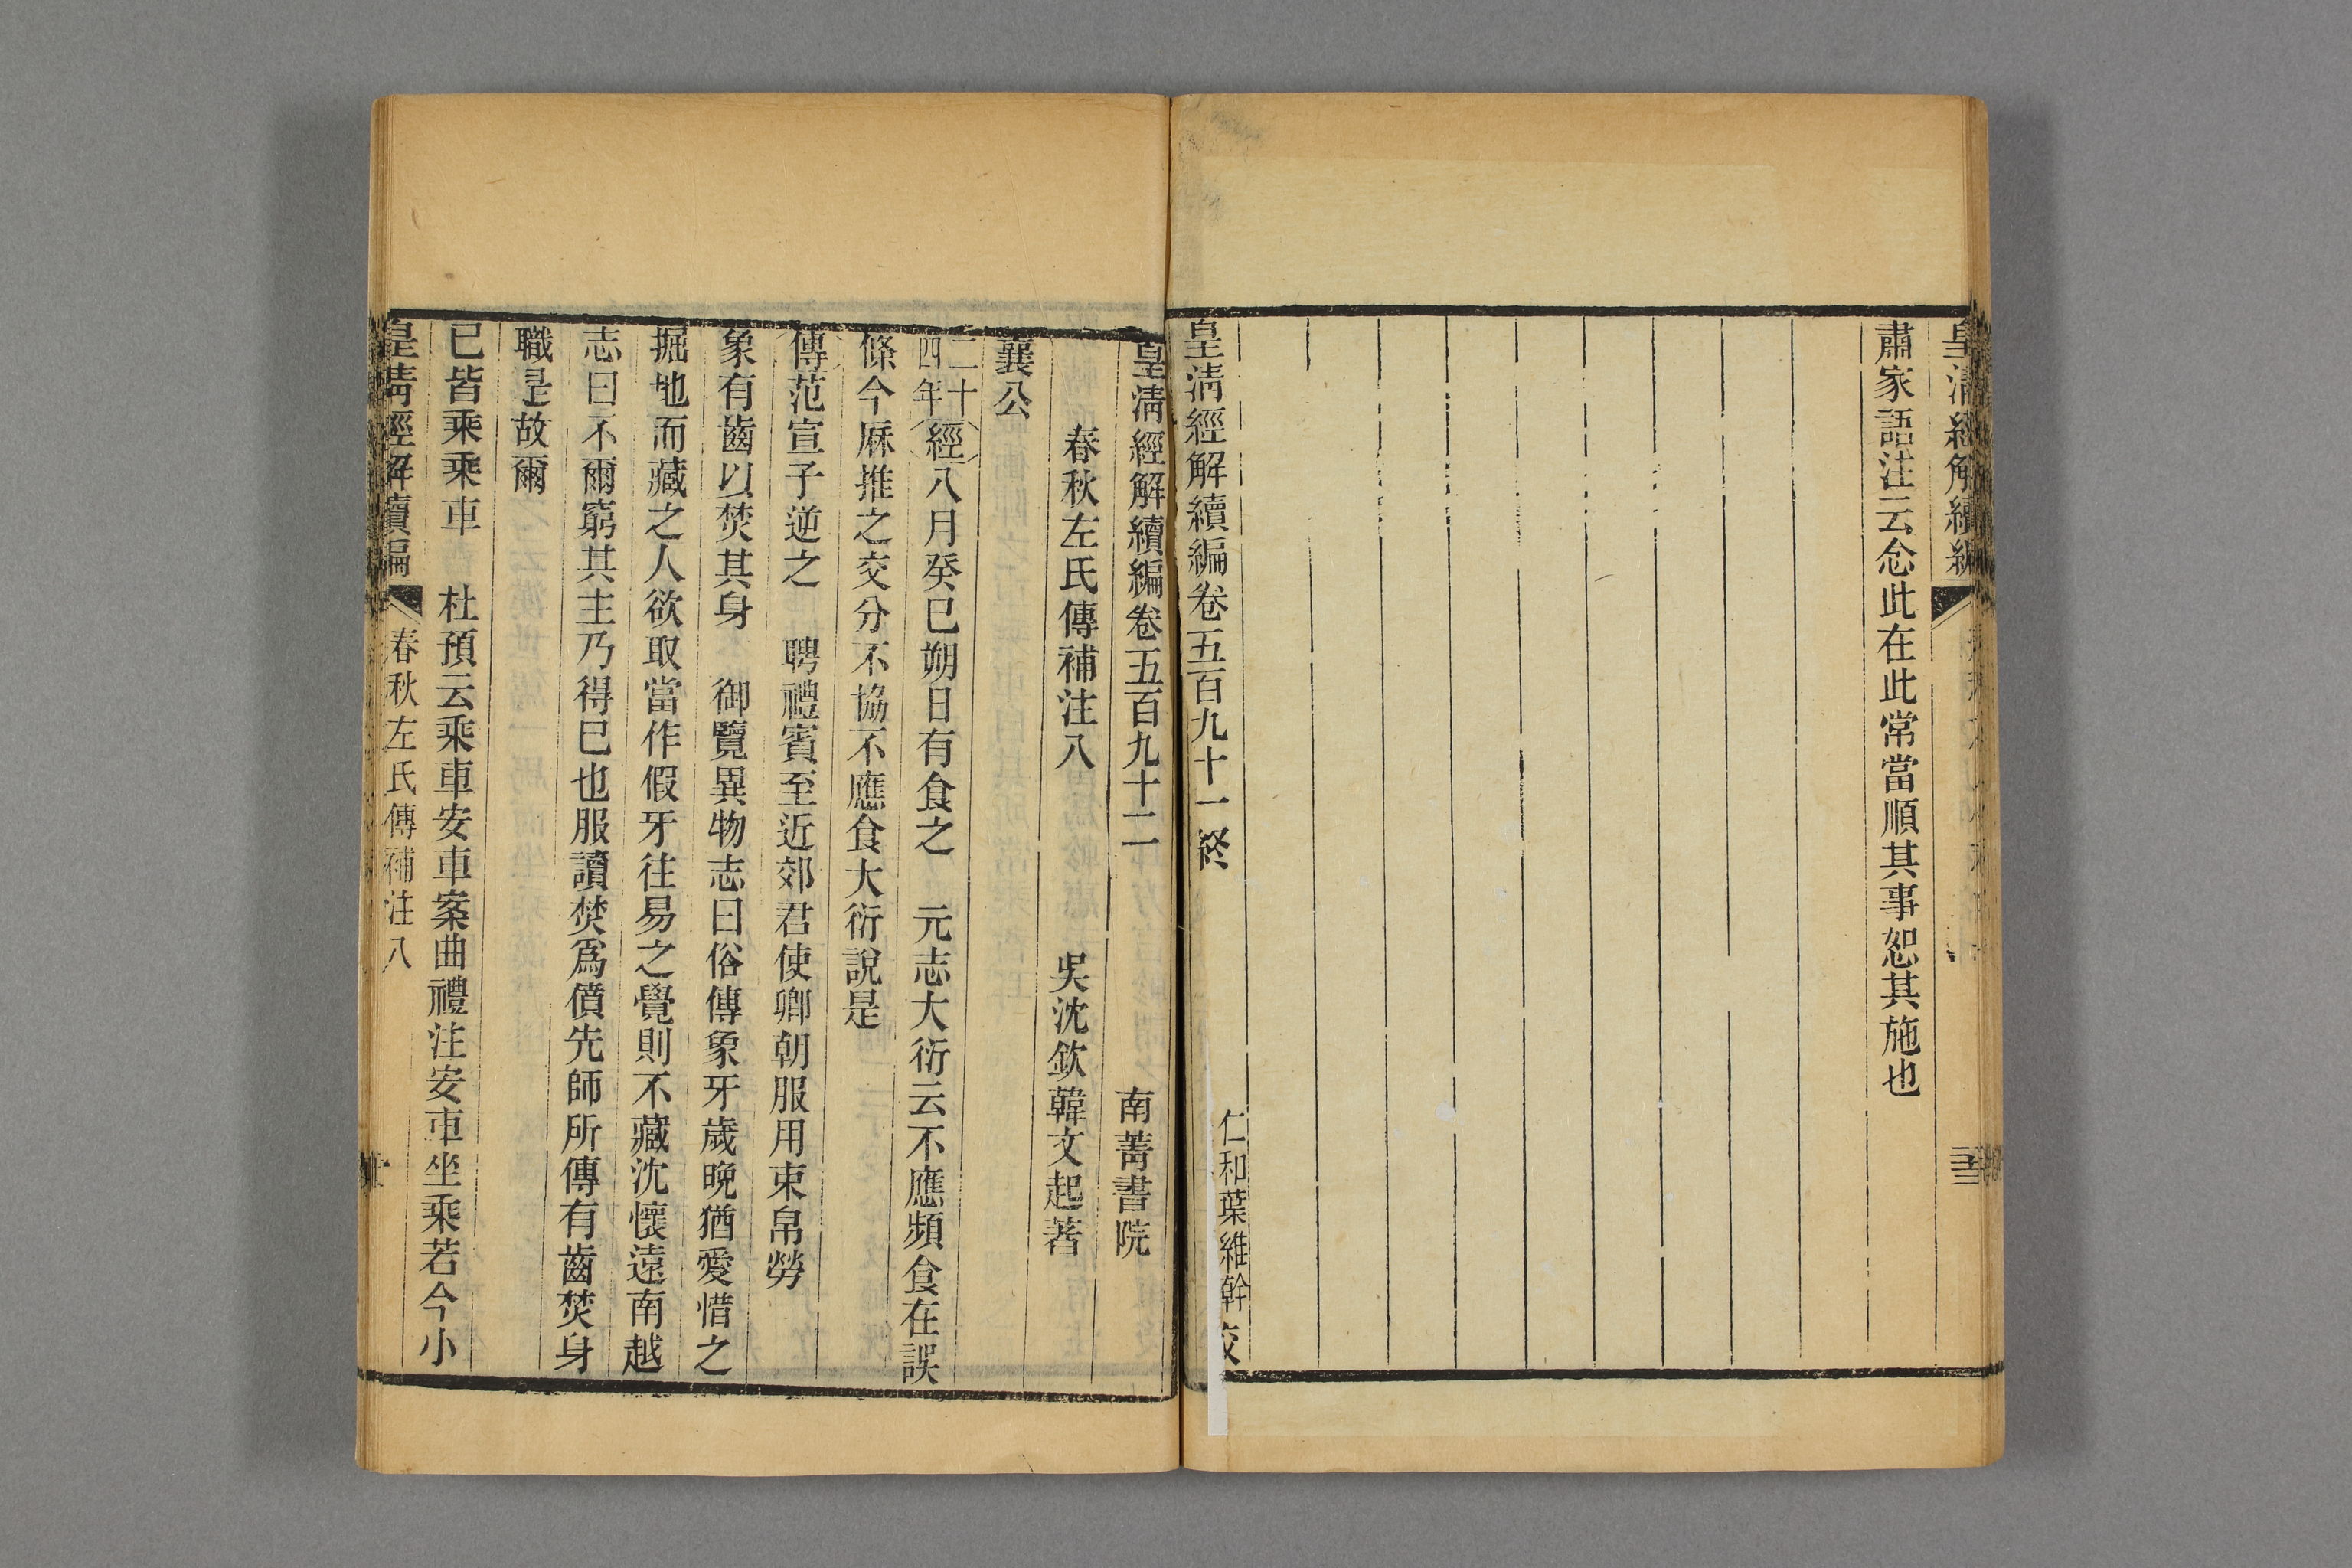 皇清經解續編
肅家語注云念此在此常當順其事恕其施也
仁和葉維幹校
皇清經解續編卷五百九十一終
皇清經解續編卷五百九十二 南菁書院
春秋左氏傳補注八 吳沈欽韓文起著
襄公
二十四年經八月癸巳朔日有食之 元志大衍云不應頻食在誤
條今厤推之交分不協不應食大衍說是
傳范宣子逆之 聘禮賓至近郊君使卿朝服用束帛勞
象有齒以焚其身 御覽異物志曰俗傳象牙歲晚猶愛惜之
掘地而藏之人欲取當作假牙往易之覺則不藏沈懷遠南越
志曰不爾窮其主乃得已也服讀焚爲僨先師所傳有齒焚身
職是故爾
已皆乘乘車 杜預云乘車安車案曲禮注安車坐乘若今小
皇清經解續編 春秋左氏傳補注八